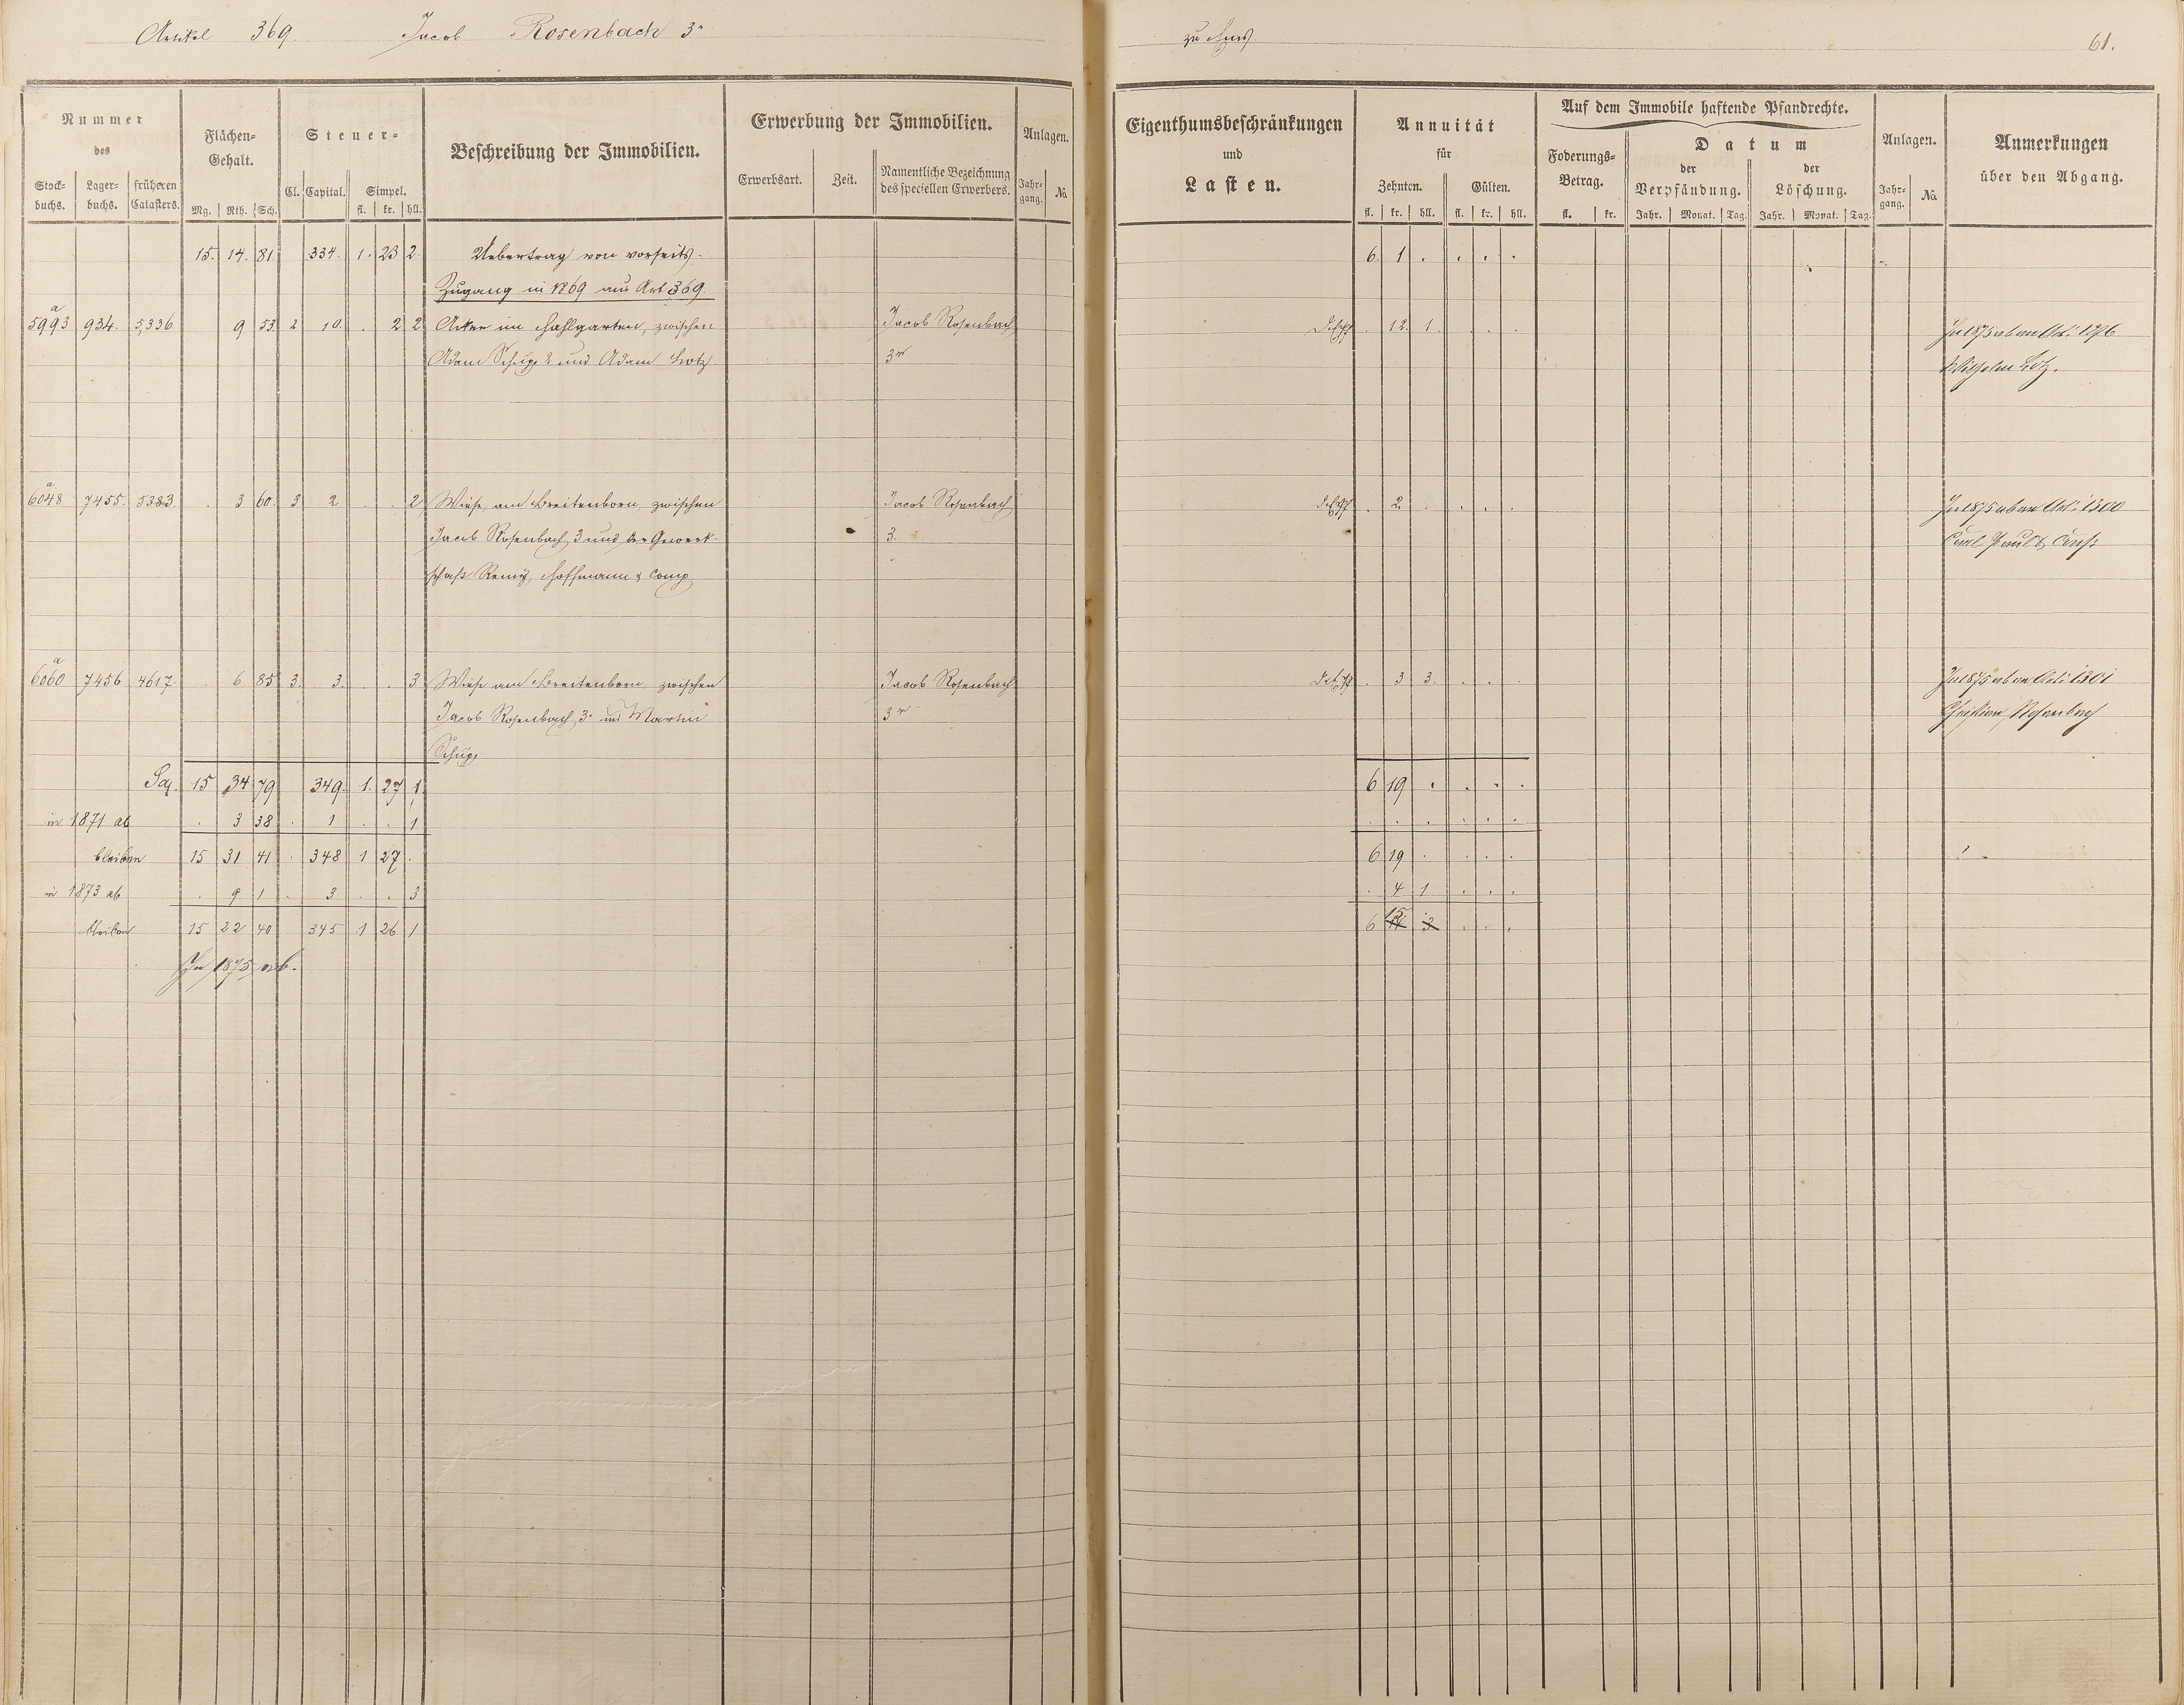 Artikel 369. Jacob Rosenbach 3r
Nummer
des
Stock-
buchs.
Lager-
buchs.
früheren
Catasters.
Flächen-
Gehalt.
Mg. Rth. Sch.
Steuer-
Cl. Capital. Simpel.
fl. kr. hll.
Beschreibung der Immobilien.
Erwerbung der Immobilien.
Erwerbsart. Zeit.
Namentliche Bezeichnung
des speciellen Erwerbers.
Anlagen.
Jahr-
gang.
No.
15. 14. 81 334. 1. 23 2. Uebertrag von vorseits.
Zugang in 1869 aus Art 369.
a
5993 934. 5,336 9 53. 2 10. . 2 2 Acker im Hahlgarten, zwischen Jacob Rosenbach
Adam Schupp 2 und Adam Lotz 3r
a
6048 7455. 5383. . 3 60. 3 2 . . 2 Wiese, am Breitenborn, zwischen Jacob Rosenbach
Jacob Rosenbach 3 und der Gewerk- 3.
schaft Remy, Hoffmann & Comp
a
6060 7456 4617. . 6 85 3. 3. . . 3 Wiese am Breitenborn zwischen Jacob Rosenbach
Jacob Rosenbach 3r und Martin 3r
Schupp
Sa. 15 34 79 349. 1. 27 1.
in 1871 ab . 3 38 . 1 . . 1
bleiben 15 31 41 . 348 1 27 .
in 1873 ab . 9 1 . 3 . . 3
bleiben 15 22 40 345 1 26 1
In 1875 ab.
zu 61.
Eigenthumsbeschränkungen
und
Lasten.
Annuität
für
Zehnten. Gülten.
fl. kr. hll. fl. kr. hll.
Auf dem Immobile haftende Pfandrechte.
Foderungs-
Betrag.
fl. kr.
Datum
der
Verpfändung.
Jahr. Monat. Tag.
der
Löschung.
Jahr. Monat. Tag.
Anlagen.
Jahr-
gang.
No.
Anmerkungen
über den Abgang.
6. 1 . . . .
. 12. 1. . . . In 1875 ab an Art: 1296
Wilhelm Lotz.
. 2. . . . . In 1875 ab an Art: 1300
Carl Paul & Cons:
. 3 3. . . . In 1875 ab an Art: 1301
Christian Rosenbach
6 19 . . . .
. . . . . .
6 19 . . . .
. 4 1 . . .
15
6 3 . . .